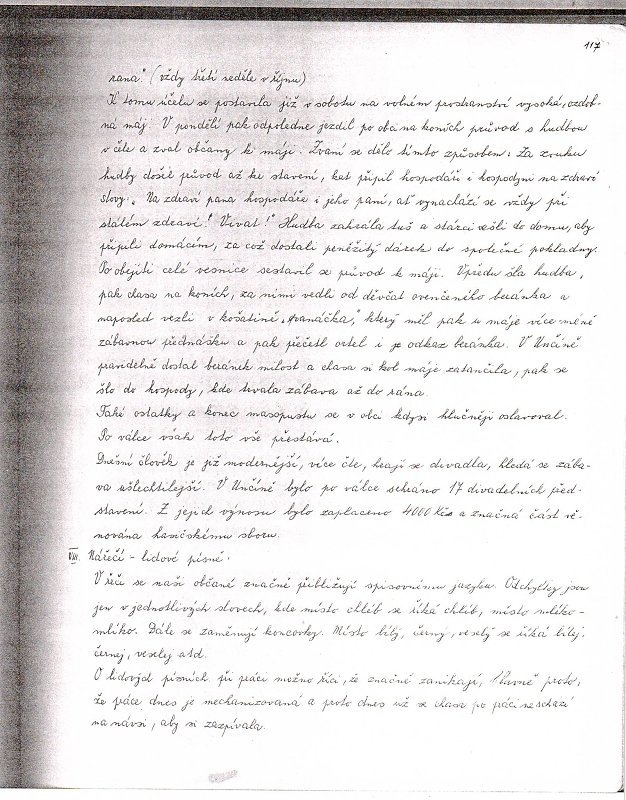 117
rana" (vždy třetí neděle v říjnu)
K tomu účelu se postavila již v sobotu na volném prostranství vysoká, ozdob-
ná máj. V pondělí pak odpoledne jezdil po obci na koních průvod s hudbou
v čele a zval občany k máji. Zvaní se dělo tímto způsobem: Za zvuku
hudby došel průvod až ke stavení, kat připil hospodáři i hospodyni na zdraví
slovy: „Na zdraví pana hospodáře i jeho paní, ať vynachází se vždy při
stálém zdraví! Vivat!" Hudba zahrála tuš a stárci vešli do domu, aby
připili domácím, za což dostali peněžitý dárek do společné pokladny.
Po obejití celé vesnice sestavil se průvod k máji. Vpředu šla hudba,
pak chasa na koních, za nimi vedli od děvčat ovenčeného beránka a
naposled vezli v košatině, který měl pak u máje více méně
zábavnou přednášku a pak přečetl ortel i odkaz beránka. V Unčíně
pravidelně dostal beránek milost a chasa si kol máje zatančila, pak se
šlo do hospody, kde trvala zábava až do rána.
Také ostatky a konec masopustu se v obci kdysi hlučněji oslavoval.
Po válce však toto vše přestává.
Dnešní člověk je již modernější, více čte, hrají se divadla, hledá se zába-
va ušlechtilejší. V Unčíně bylo po válce sehráno 17 divadelních před-
stavení. Z jejich výnosu bylo zaplaceno 4000 Kčs a značná část vě-
nována hasičskému sboru.
VIII. Nářečí - lidové písně.
V řeči se naši občané značně přibližují spisovnému jazyku. Odchylky jsou
jen v jednotlivých slovech, kde místo chléb se říká chlíb, místo mléko -
mlíko. Dále se zaměňují koncovky. Místo bílý, černý, veselý se říká bílej,
černej, veselej atd.
O lidových písních při práci možno říci, že značně zanikají, hlavně proto,
že práce dnes je mechanizovaná a proto dnes už se chasa po práci neschází
na návsi, aby si zazpívala.